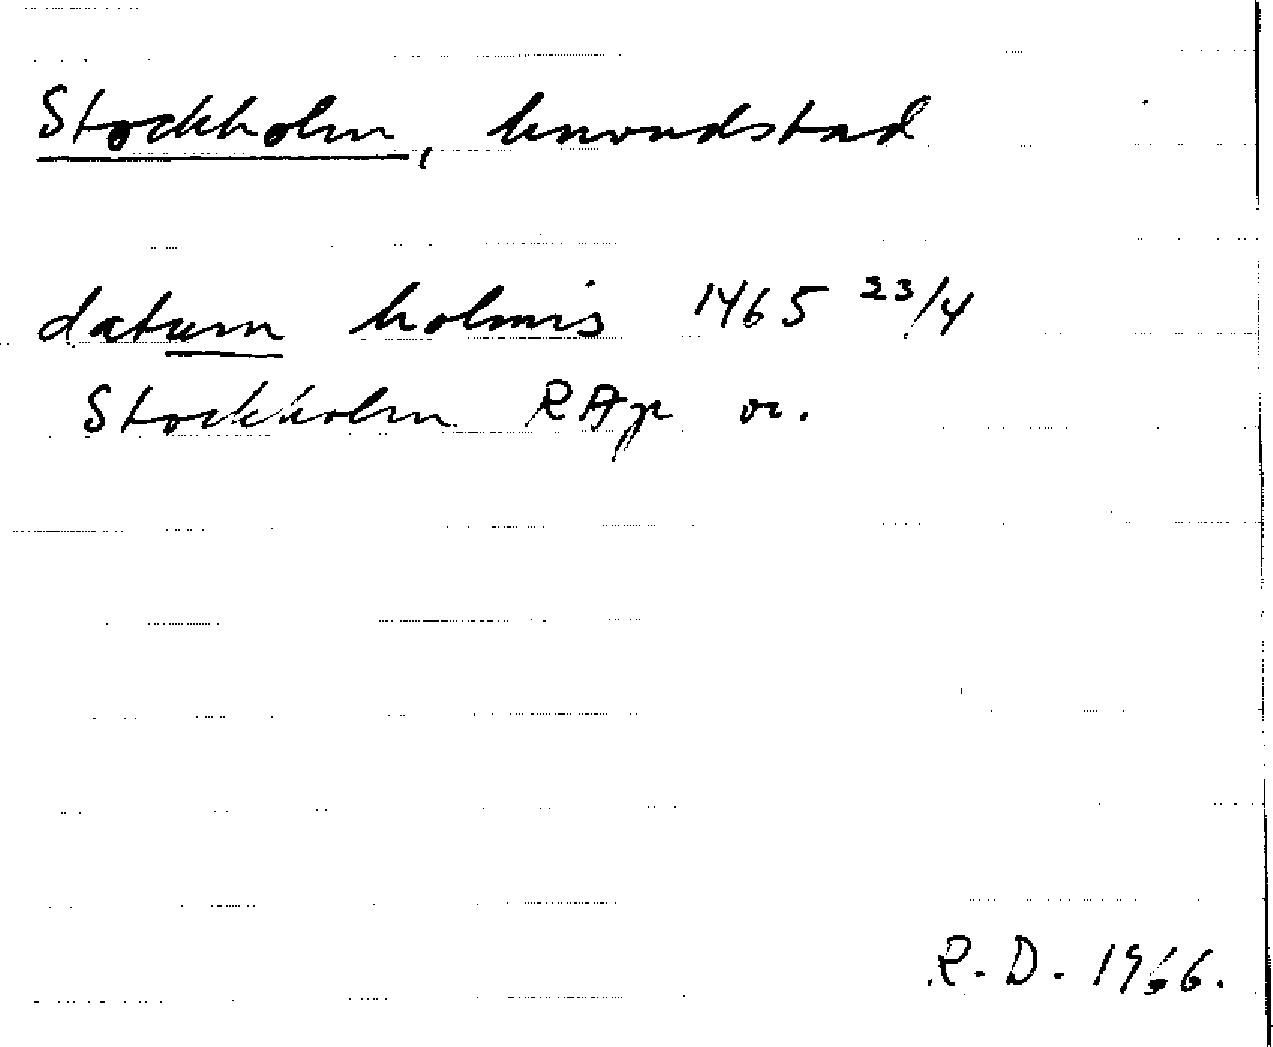 Stockholm, huvudstad
datum holmis 1465 23/4
Stockholm RAp or.
R.D. 1966.